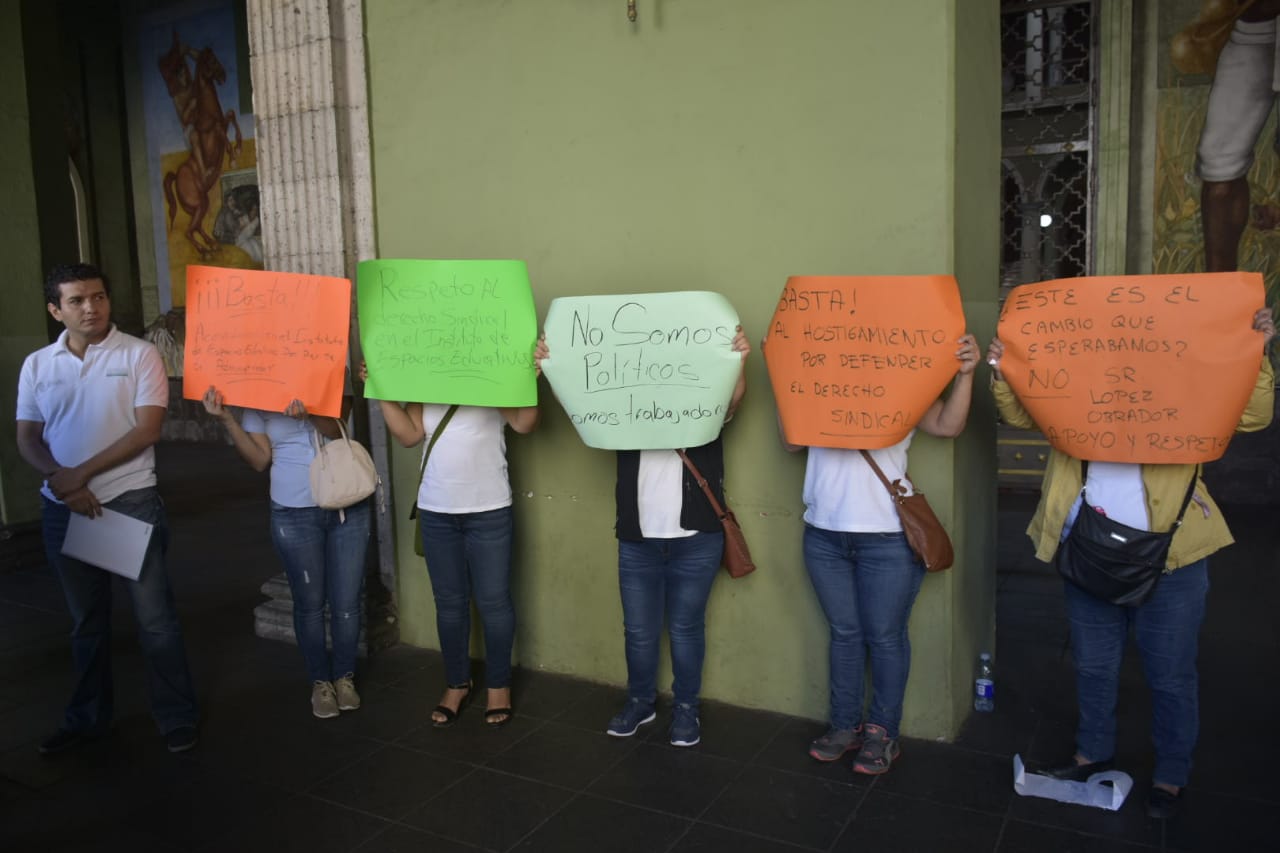 ¡¡¡Basta!!!
en el Instituto
de Espacios Educativos
RESPETO AL
derecho Sindical
en el Instituto de
Espacios Educativos
No Somos
Políticos
somos trabajadores
BASTA!
AL HOSTIGAMIENTO
POR DEFENDER
EL DERECHO
SINDICAL
ESTE ES EL
CAMBIO QUE
ESPERABAMOS?
NO SR
LOPEZ
OBRADOR
APOYO Y RESPETO